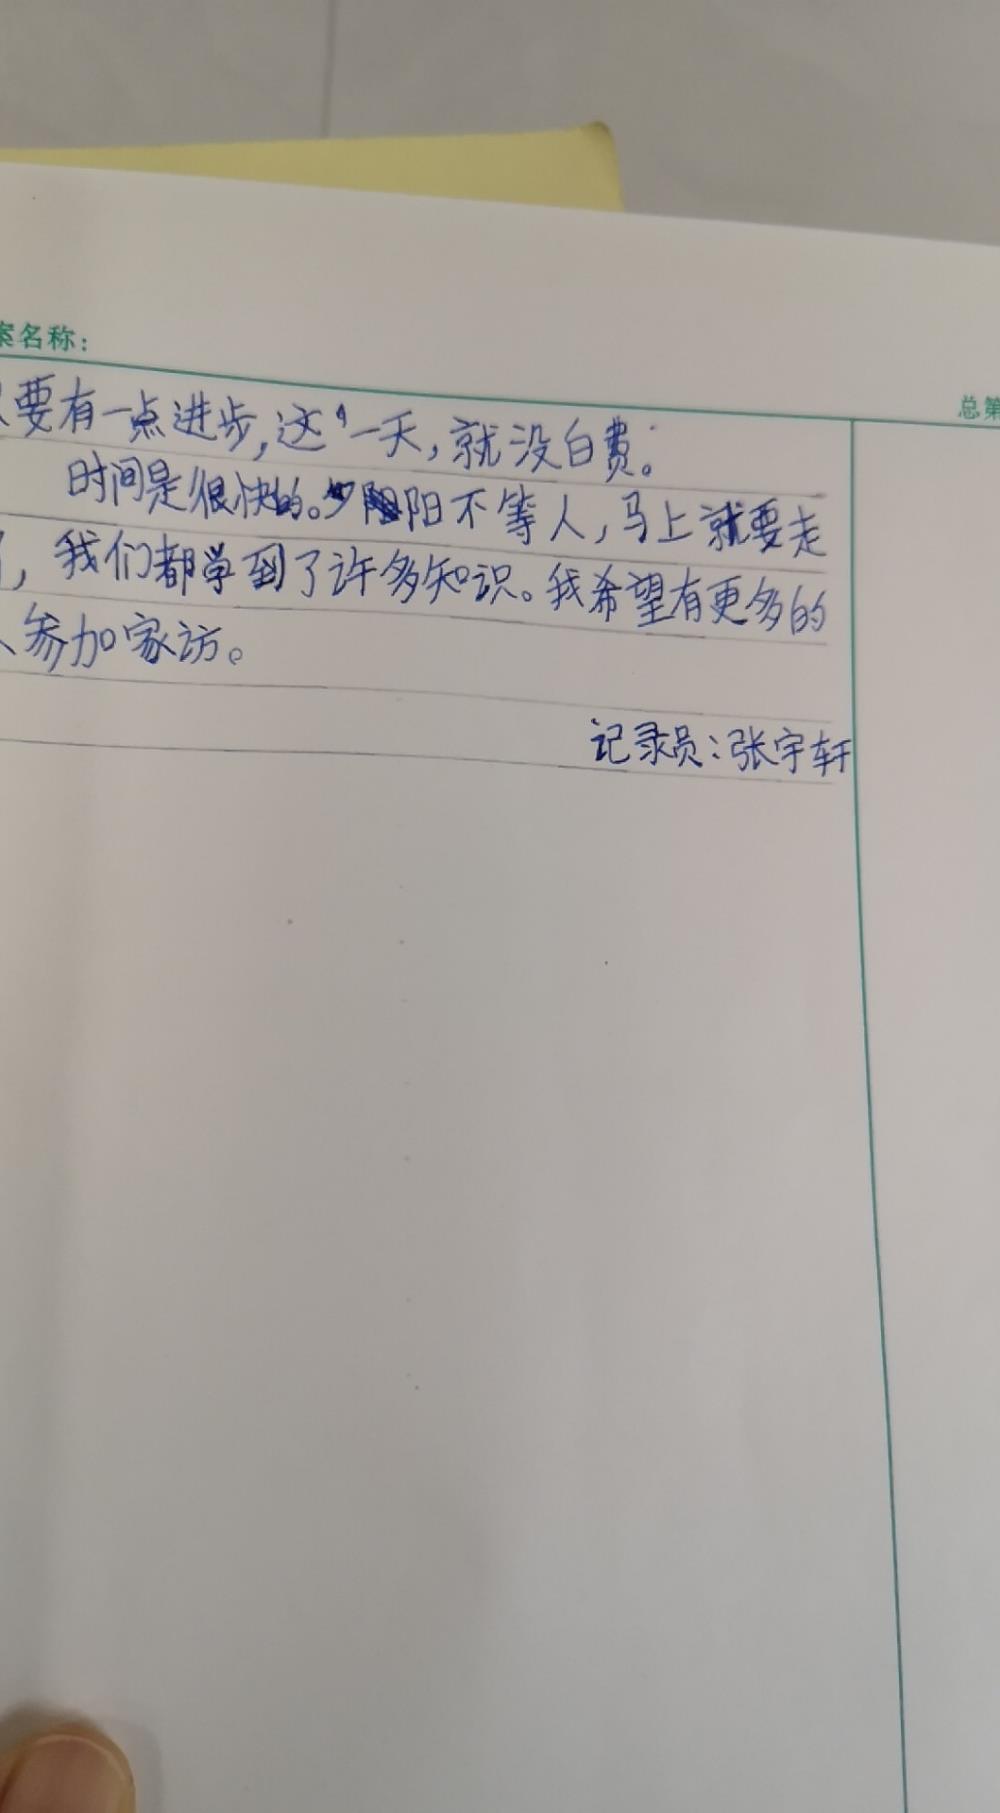 案名称：
总第
要有一点进步，这一天，就没白费。
时间是很快的。夕阳不等人，马上就要走
了，我们都学到了许多知识。我希望有更多的
人参加家访。
记录员：张宇轩